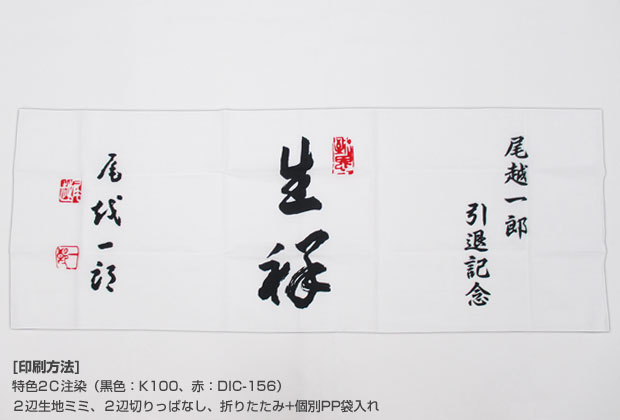 尾越一郎
引退記念
生祥
尾越一郎
[印刷方法]
特色2C注染（黒色：K100、赤：DIC-156）
２辺生地ミミ、２辺切りっぱなし、折りたたみ+個別PP袋入れ